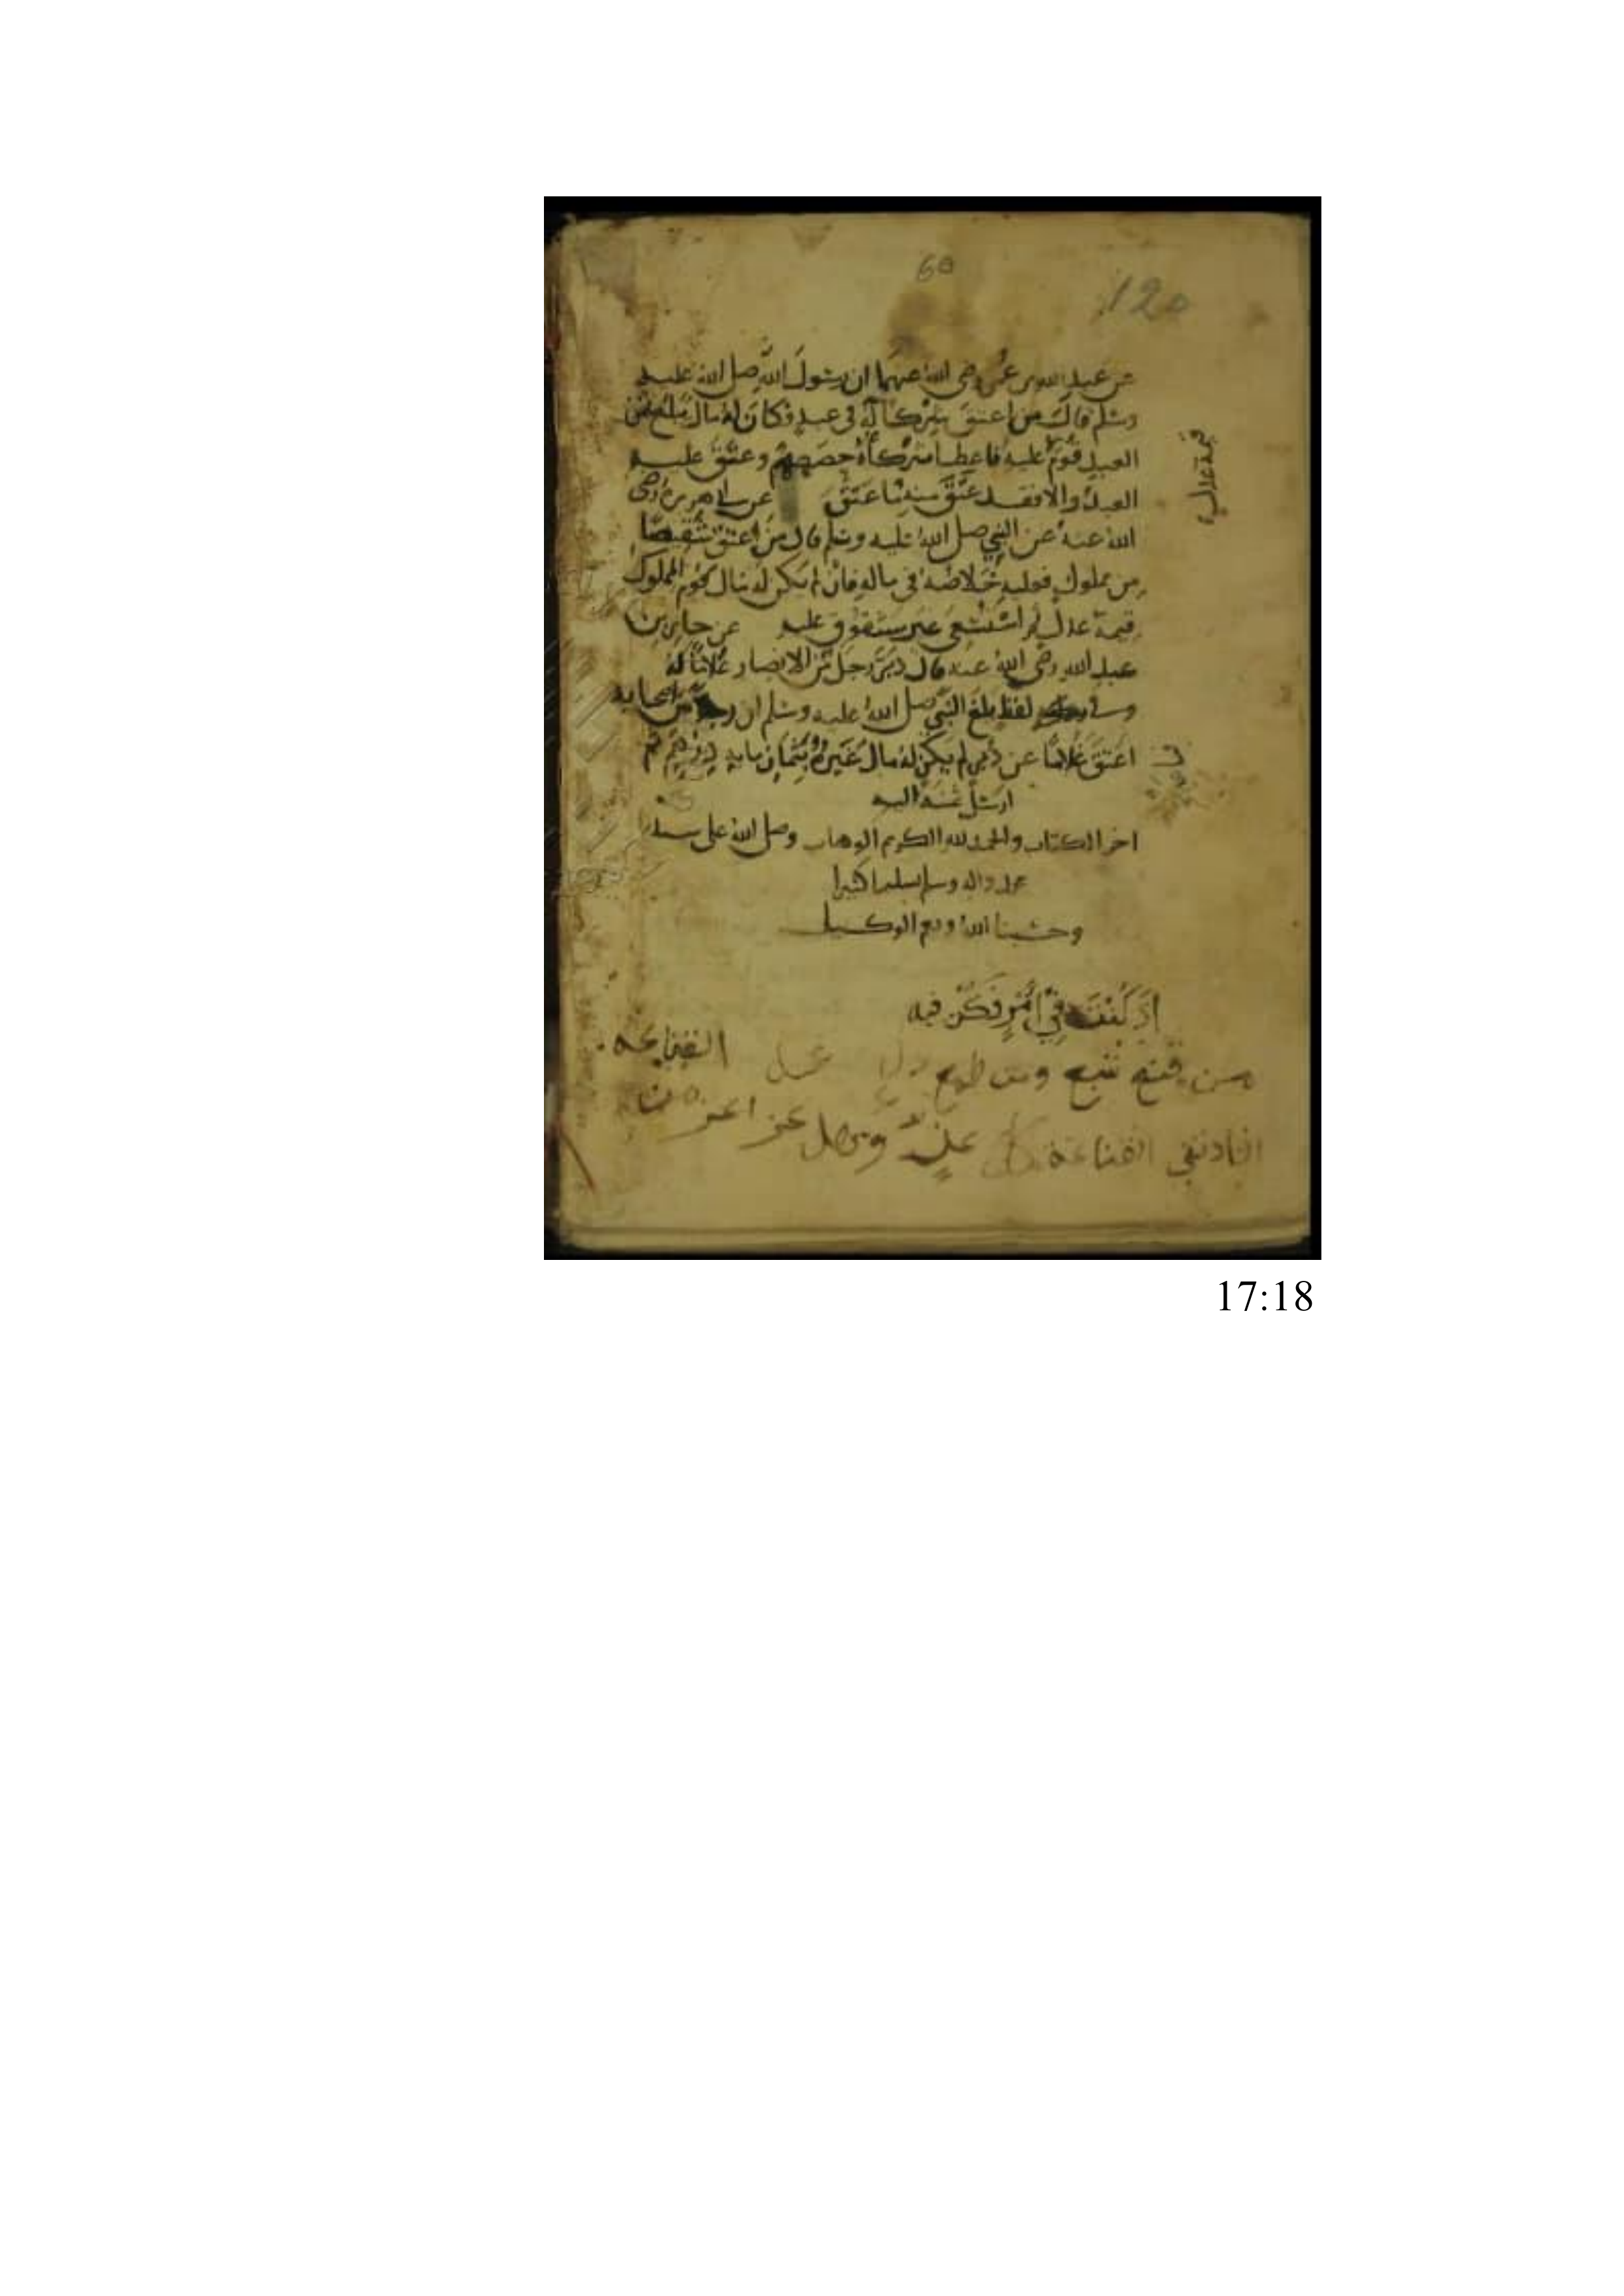 60
120
عن عبد الله بن عمر رضى الله عنهما ان رسول الله صلى الله عليه
وسلم قال من اعتق شركا له في عبد فكان له مال يبلغ ثمن
العبد قوم عليه فاعطا شركاه حصصهم وعتق عليه
قيمة عدل
العبد والا فقد عتق منه ما عتق عن ابى هريرة رضى
الله عنه عن النبي صلى الله عليه وسلم قال من اعتق شقيصا
من مملوك فعليه خلاصه في ماله فان لم يكن له مال قوم المملوك
قيمة عدل ثم استسعى غير مشقوق عليه عن جابر بن
عبد الله رضى الله عنه قال دبر رجل من الانصار غلاما له
وفي لفظ بلغ النبي صلى الله عليه وسلم ان رجلا من اصحابه
اعتق غلاما عن دبر لم يكن له مال غيره بثمان مايه درهم ثم
ارسل ثمنه اليه
اخر الكتاب والحمد لله الكريم الوهاب وصلى الله على سيدنا
محمد واله وسلم تسليما كثيرا
وحسبنا الله ونعم الوكيل
اذ كنت في امر فكن فيه
من قنع شبع ومن طمع
افادتني القناعة كل عز وهل عز اعز من
القناعه